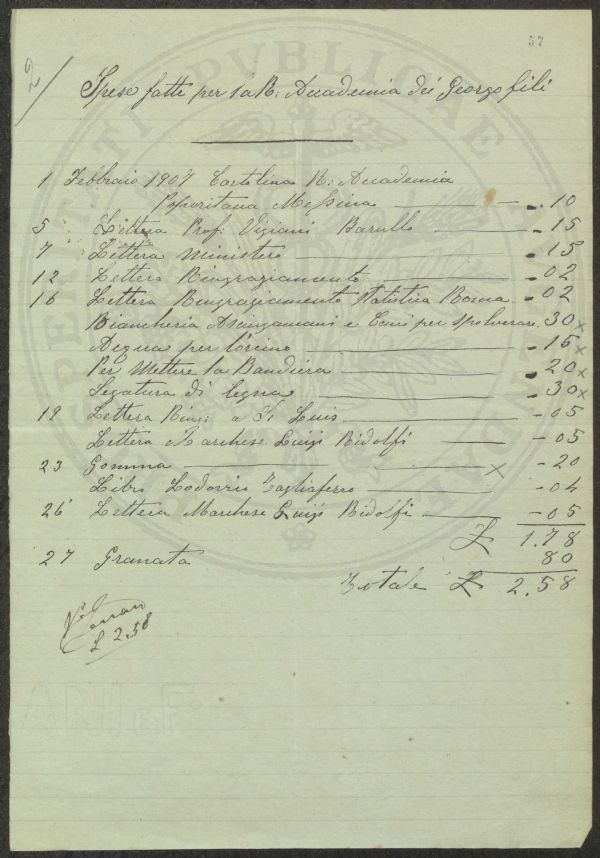 57
2
Spese fatte per la R: Accademia dei Georgofili
1 Febbraio 1907 Cartolina R: Accademia
Peloritana Messina - . 10
5 Lettera Prof: Vigiani Barullo - . 15
7 Lettera Ministero - . 15
12 Lettera Ringraziamento - . 02
16 Lettera Ringraziamento Statistica Roma - 02
Biancheria Asciugamani e Cenci per spolverare. 30 x
Acqua per l'orcino - . 15 x
Per Mettere la Bandiera - . 20 x
Segatura di legna - . 30 x
19 Lettera Ring: a St Luis - 05
Lettera Marchese Luigi Ridolfi - 05
23 Gomma x - 20
Libro Lodovico Tagliaferro - 04
26 Lettera Marchese Luigi Ridolfi - 05
£ 1.78
27 Granata 80
Totale £ 2.58
£ 2.58